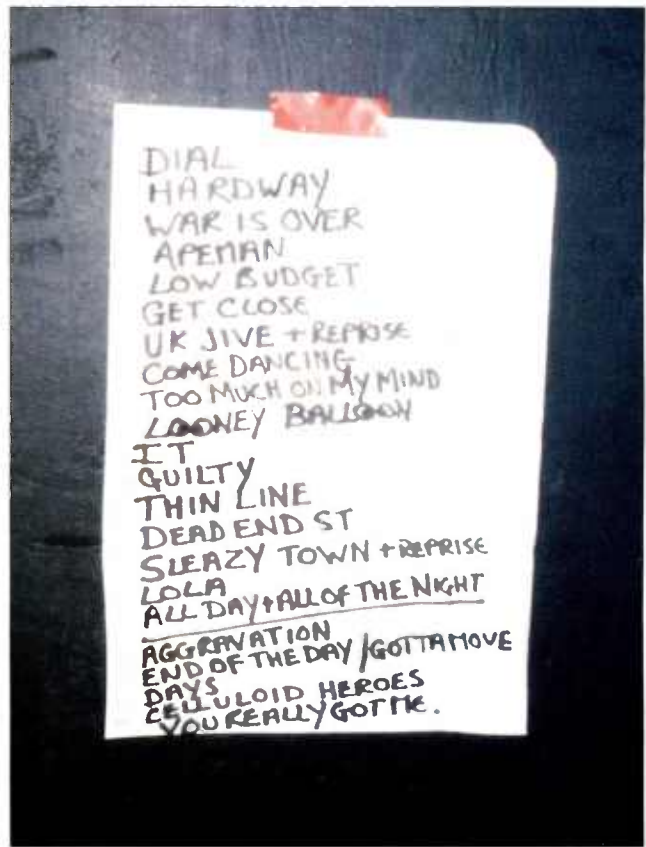 DIAL
HARDWAY
WAR IS OVER
APEMAN
LOW BUDGET
GET CLOSE
UK JIVE + REPRISE
COME DANCING
TOO MUCH ON MY MIND
LOONEY BALLOON
IT
GUILTY
THIN LINE
DEAD END ST
SLEAZY TOWN + REPRISE
LOLA
ALL DAY + ALL OF THE NIGHT
AGGRAVATION
END OF THE DAY / GOTTA MOVE
DAYS
CELLULOID HEROES
YOU REALLY GOT ME.